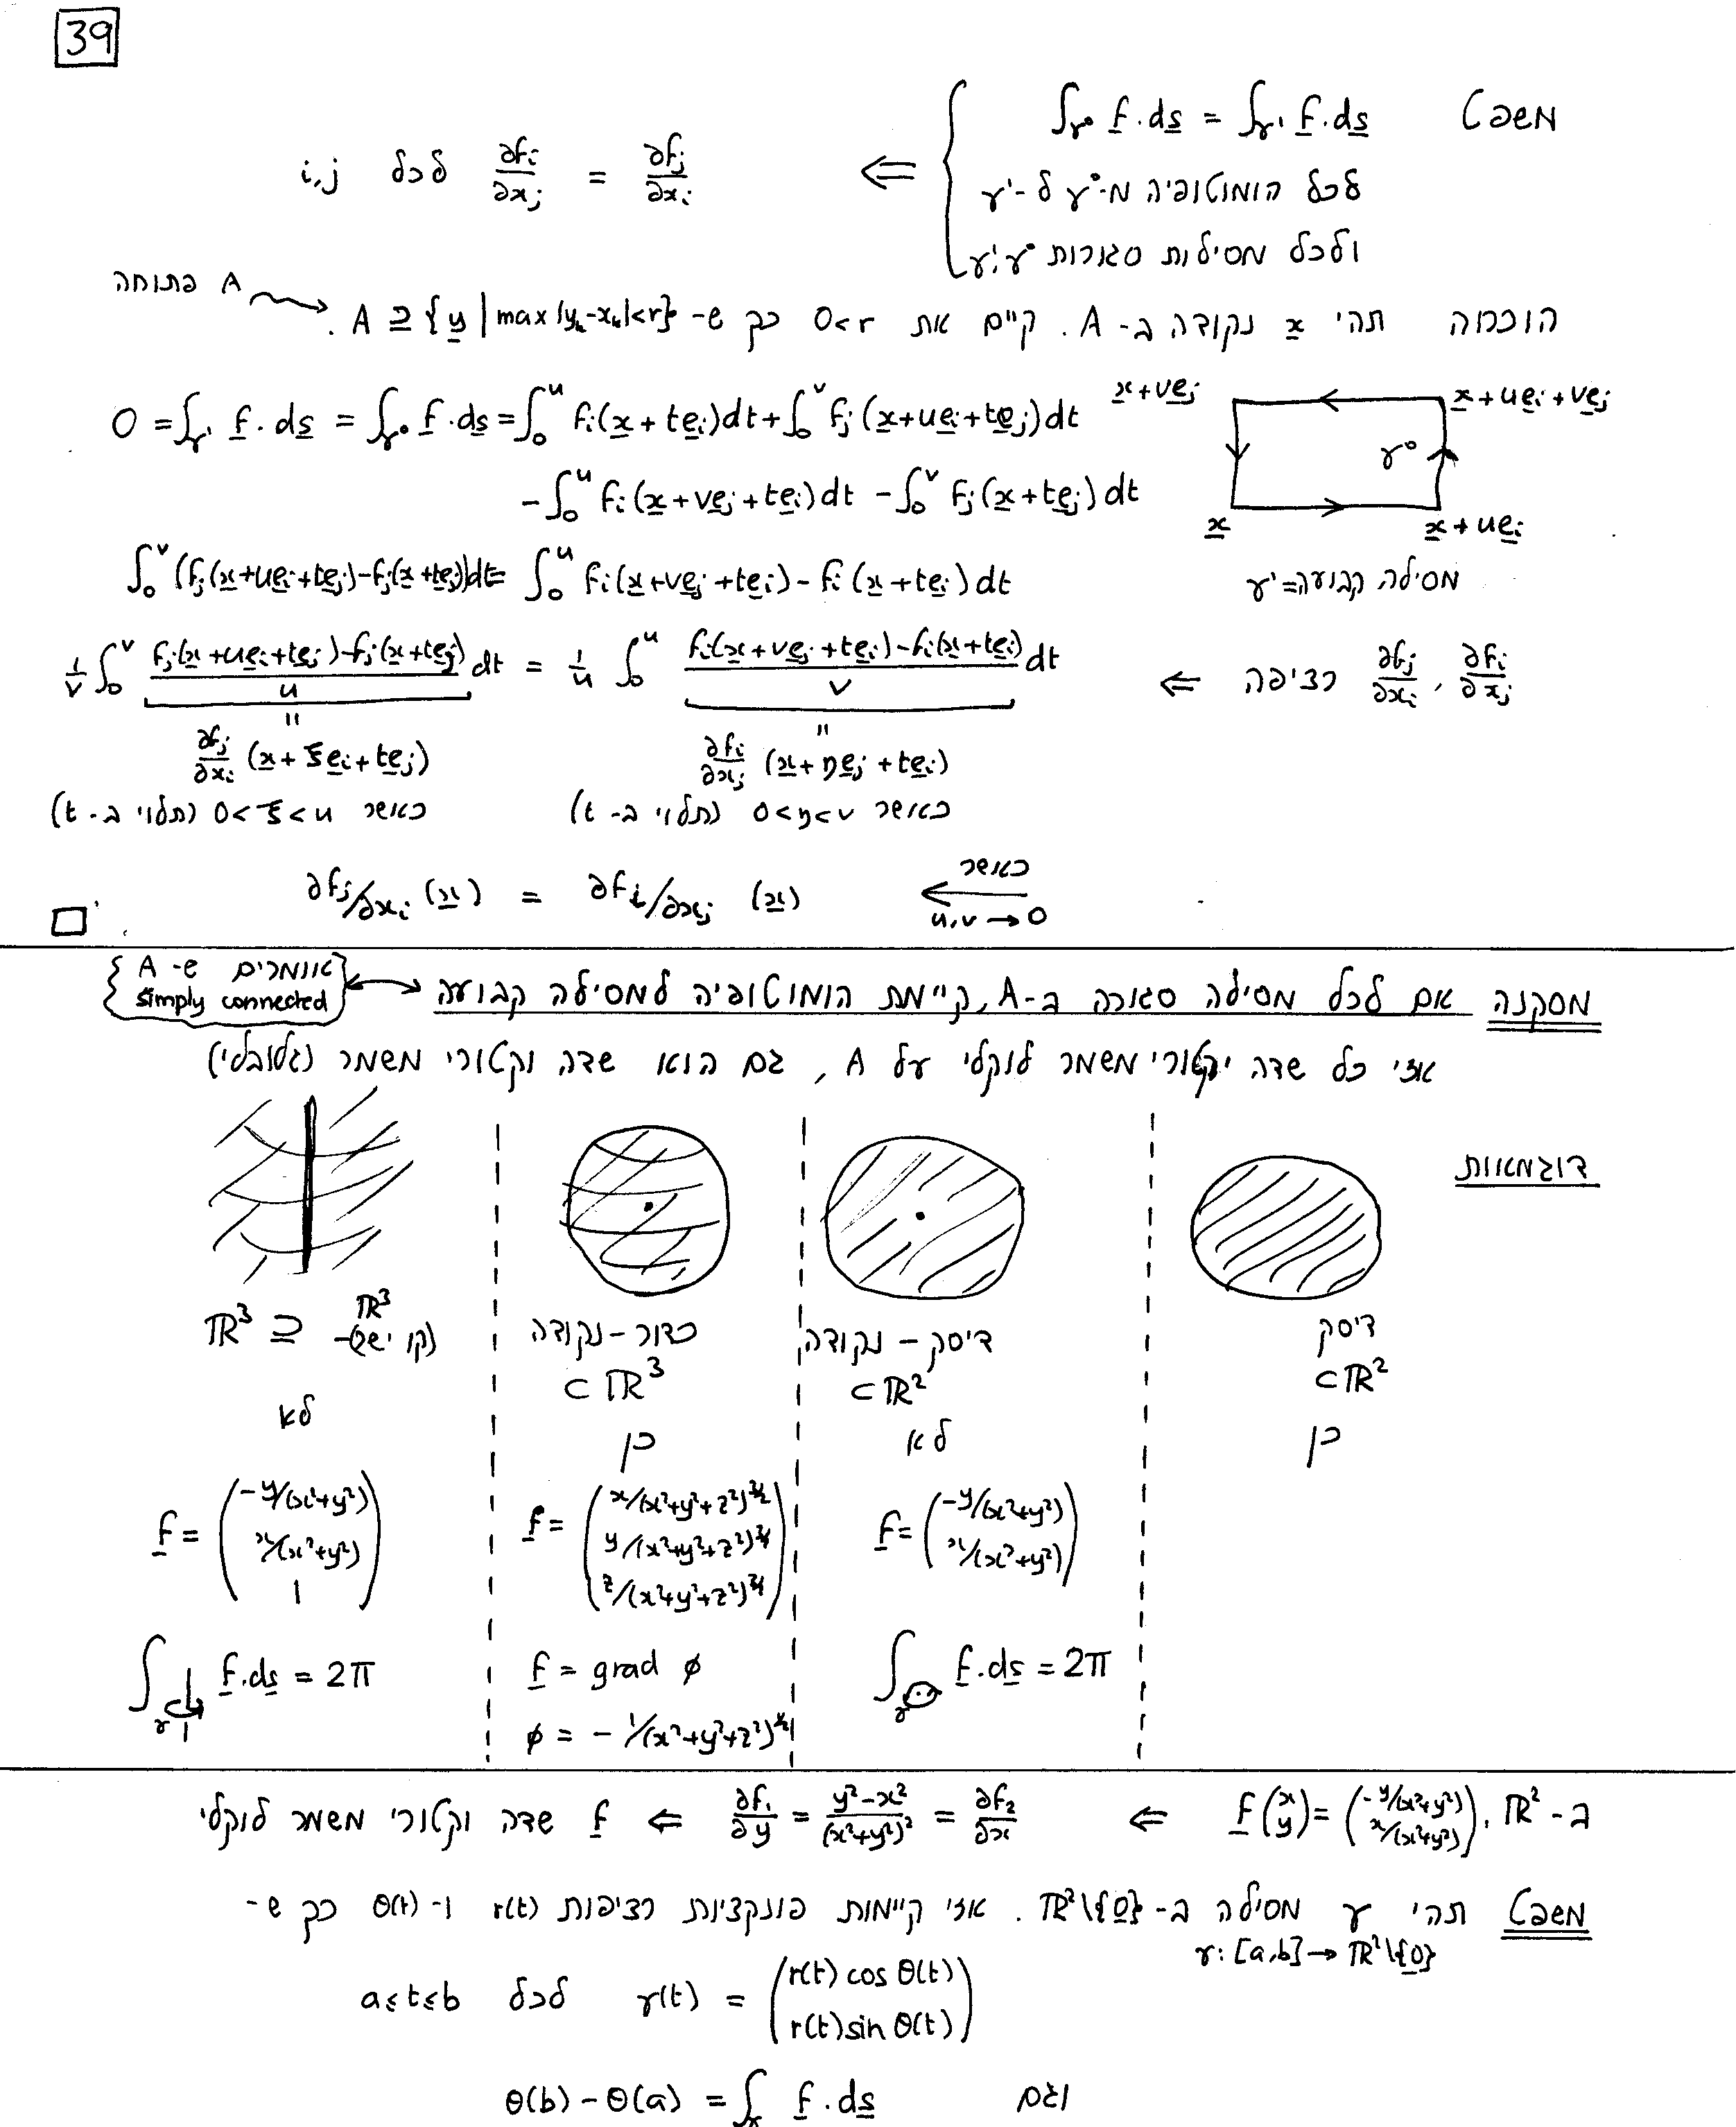 39
משפט ∫_{γ⁰} f.ds = ∫_{γ¹} f.ds
לכל הומוטופיה מ-γ⁰ ל-γ¹
ולכל מסילות סגורות γ⁰, γ¹
⇐ ∂f_i/∂x_j = ∂f_j/∂x_i לכל i,j
A פתוחה
הוכחה תהי x נקודה ב-A. קיים את 0<r כך ש- A ⊇ {y | max|y_k-x_k|<r}.
0 = ∫_{γ¹} f.ds = ∫_{γ⁰} f.ds = ∫_0^u f_i(x+te_i)dt + ∫_0^v f_j(x+ue_i+te_j)dt
- ∫_0^u f_i(x+ve_j+te_i)dt - ∫_0^v f_j(x+te_j)dt
x+ve_j x+ue_i+ve_j
γ⁰
x x+ue_i
γ¹=מסילה קבועה
∫_0^v (f_j(x+ue_i+te_j)-f_j(x+te_j))dt = ∫_0^u f_i(x+ve_j+te_i)-f_i(x+te_i)dt
∂f_j/∂x_i, ∂f_i/∂x_j רציפה ⇐
1/v ∫_0^v (f_j(x+ue_i+te_j)-f_j(x+te_j))/u dt = 1/u ∫_0^u (f_i(x+ve_j+te_i)-f_i(x+te_i))/v dt
∂f_j/∂x_i (x+ξe_i+te_j) ∂f_i/∂x_j (x+ηe_j+te_i)
כאשר 0<ξ<u (תלוי ב-t) כאשר 0<η<v (תלוי ב-t)
כאשר u,v→0 ∂f_j/∂x_i (x) = ∂f_i/∂x_j (x)
□
מסקנה אם לכל מסילה סגורה ב-A, קיימת הומוטופיה למסילה קבועה
{אומרים ש-A simply connected}
אזי כל שדה וקטורי משמר לוקלי על A, גם הוא שדה וקטורי משמר (גלובלי)
דוגמאות
דיסק
⊂ℝ²
כן
דיסק - נקודה
⊂ℝ²
לא
f = (-y/(x²+y²), x/(x²+y²))
∫_γ f.ds = 2π
כדור - נקודה
⊂ℝ³
כן
f = (x/(x²+y²+z²)^{3/2}, y/(x²+y²+z²)^{3/2}, z/(x²+y²+z²)^{3/2})
f = grad φ
φ = -1/(x²+y²+z²)^{1/2}
ℝ³ ⊇ ℝ³-(קו ישר)
לא
f = (-y/(x²+y²), x/(x²+y²), 1)
∫_γ f.ds = 2π
ב-ℝ², f(x y) = (-y/(x²+y²), x/(x²+y²)) ⇐ ∂f₁/∂y = (y²-x²)/(x²+y²)² = ∂f₂/∂x ⇐ f שדה וקטורי משמר לוקלי
משפט תהי γ מסילה ב-ℝ²\{0}. אזי קיימות פונקציות רציפות r(t) ו-θ(t) כך ש-
γ:[a,b]→ℝ²\{0}
γ(t) = (r(t) cos θ(t), r(t) sin θ(t)) לכל a≤t≤b
וגם θ(b)-θ(a) = ∫_γ f.ds